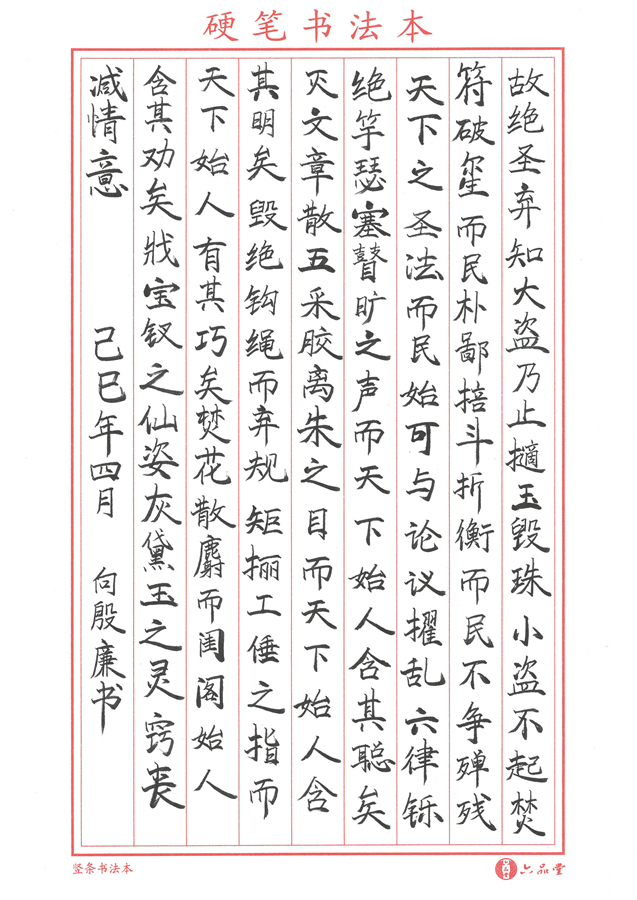 硬笔书法本
故绝圣弃知大盗乃止擿玉毁珠小盗不起焚
符破玺而民朴鄙掊斗折衡而民不争殚残
天下之圣法而民始可与论议擢乱六律铄
绝竽瑟塞瞽旷之声而天下始人含其聪矣
灭文章散五采胶离朱之目而天下始人含
其明矣毁绝钩绳而弃规矩攦工倕之指而
天下始人有其巧矣焚花散麝而闺阁始人
含其劝矣戕宝钗之仙姿灰黛玉之灵窍丧
减情意 己巳年四月 向殷廉书
竖条书法本
六品堂